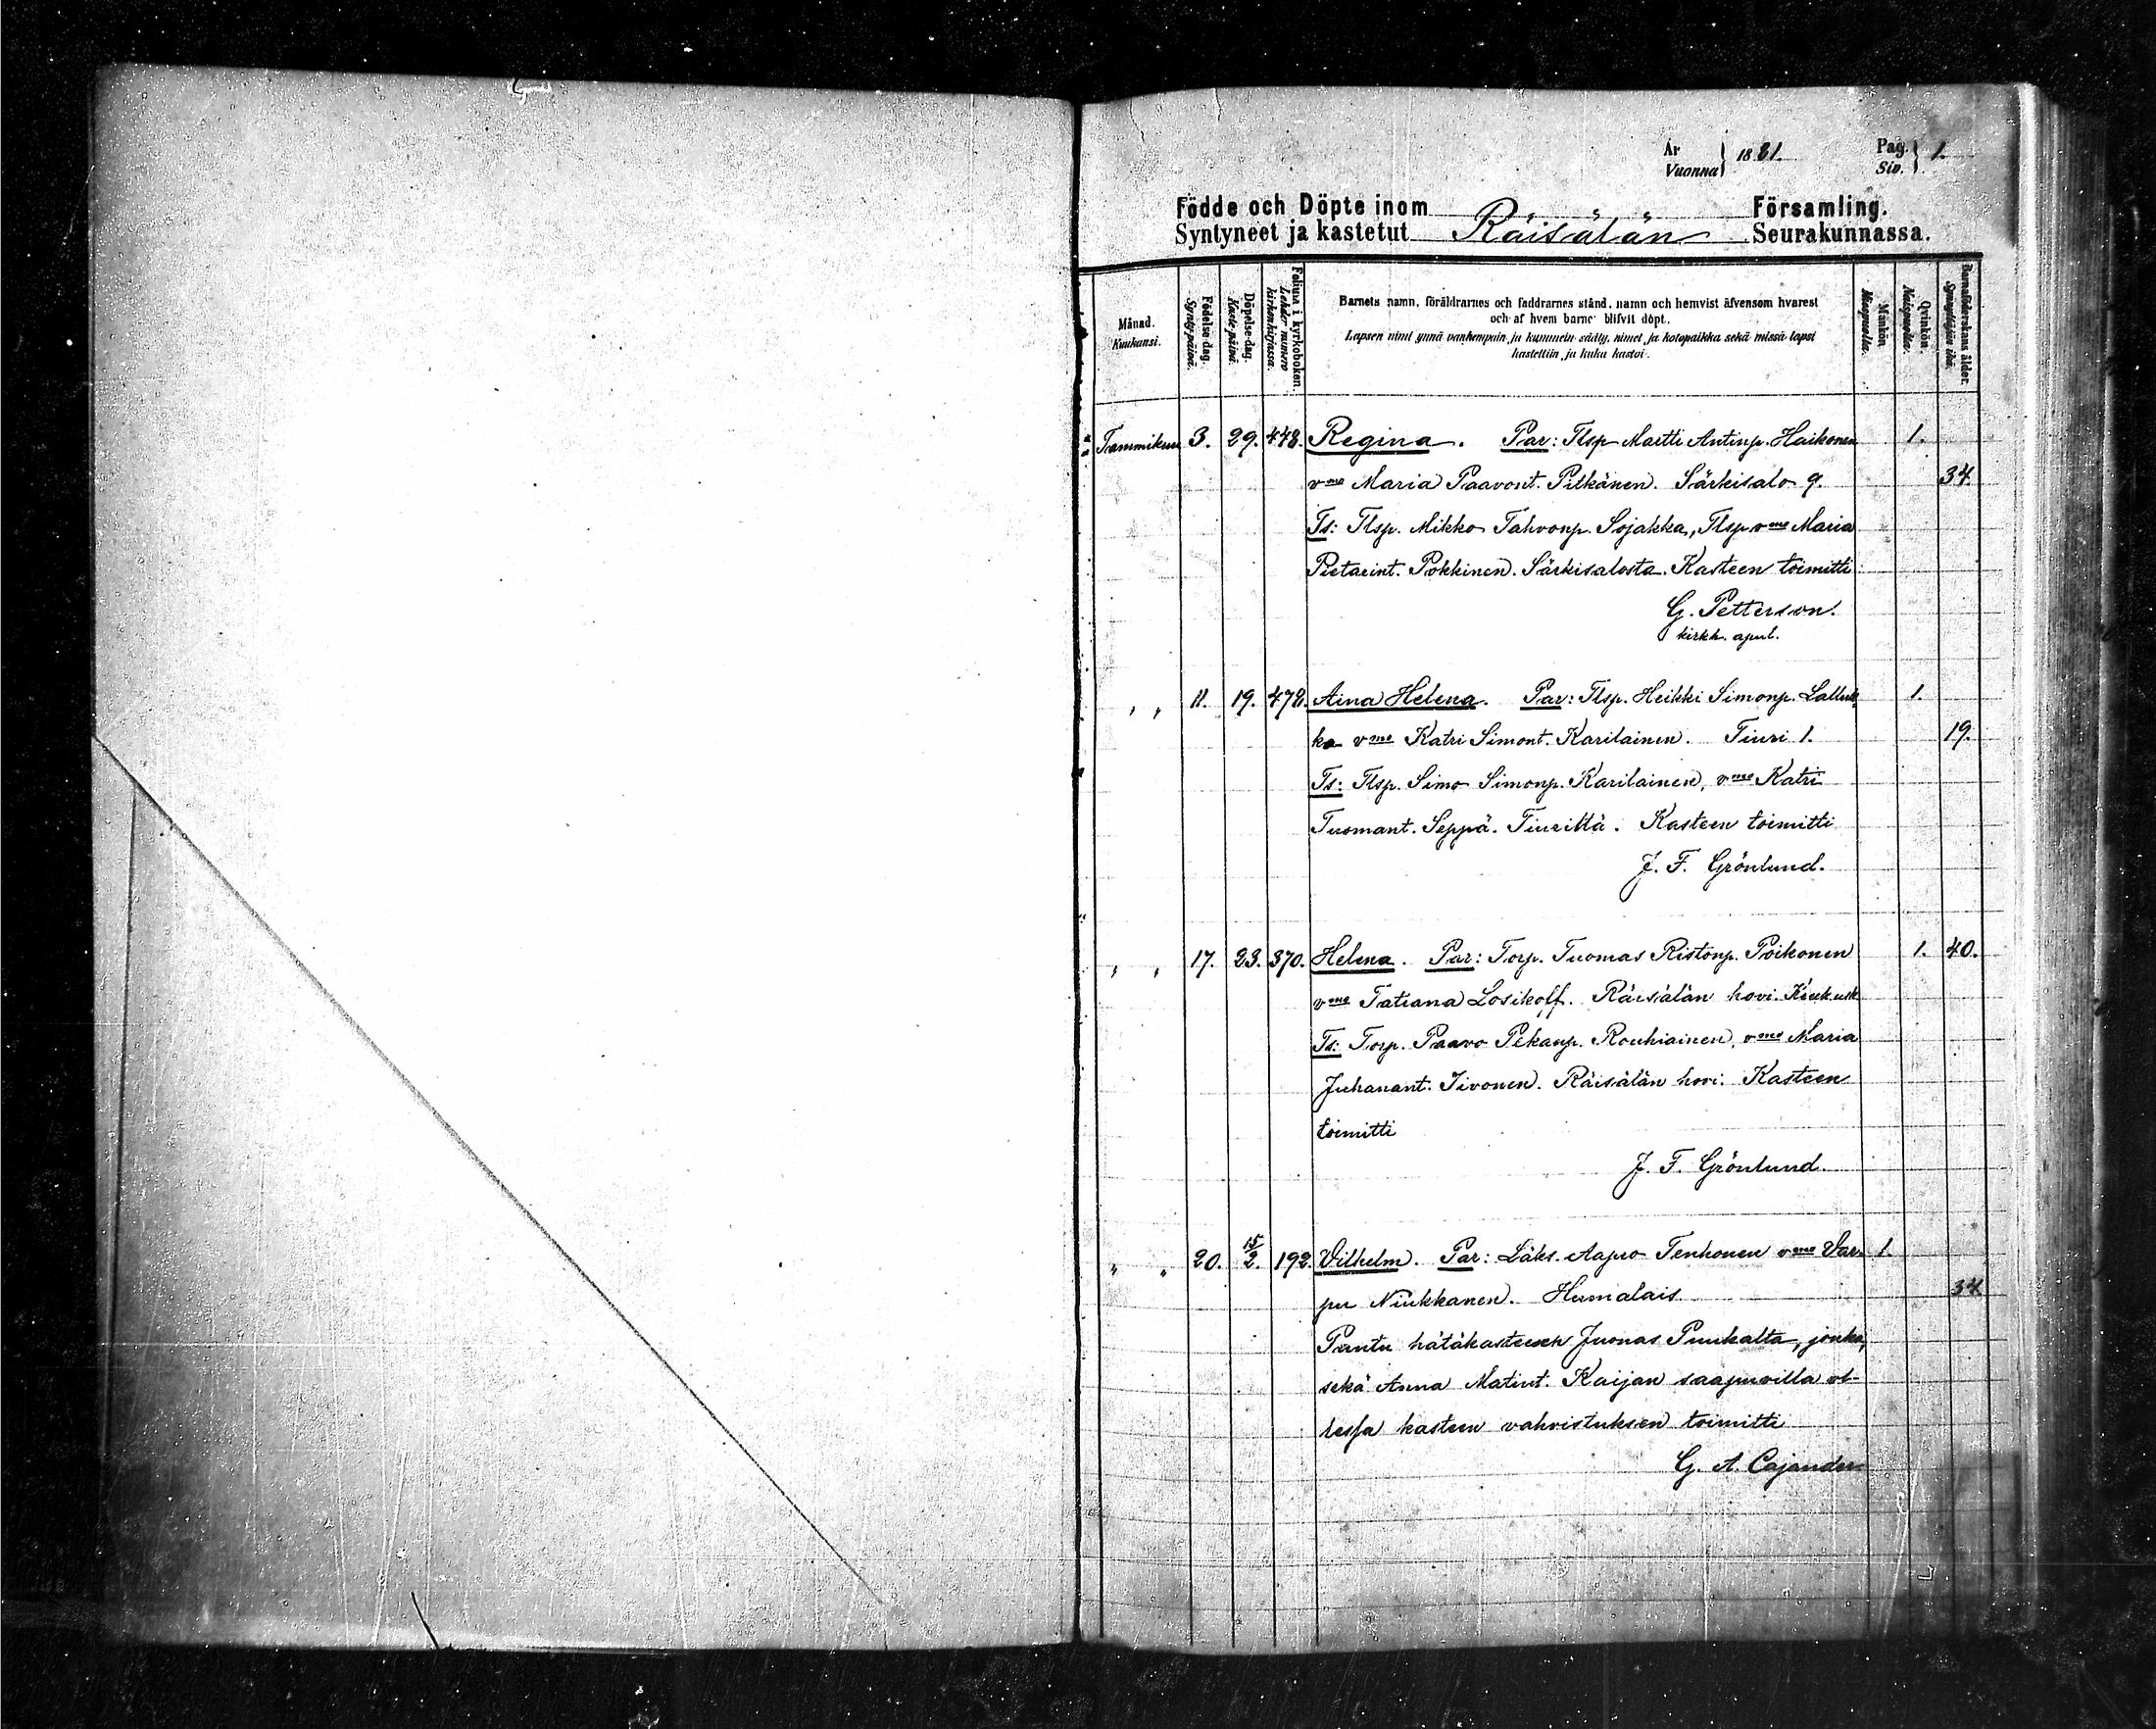 År
Vuonna } 1881.
Pag.
Siv. } 1.
Födde och Döpte inom Församling.
Syntyneet ja kastetut Räisälän Seurakunnassa.
Månad.
Kuukausi.
Födelse-dag.
Syntypäivä.
Döpelse-dag.
Kaste-päivä.
Folium i kyrkoboken.
Lehden numero
kirkonkirjassa.
Barnets namn, föräldrarnes och faddrarnes stånd, namn och hemvist äfvensom hvarest
och af hvem barnet blifvit döpt.
Lapsen nimi ynnä vanhempain ja kummein sääty, nimet ja kotopaikka sekä missä lapsi
kastettiin ja kuka kastoi.
Mankön.
Miespuolia.
Qvinkön.
Naispuolia.
Barnaföderskans ålder.
Synnyttäjän ikä.
Tammikuu 3. 29. 448. Regina. Par: Tlsp Martti Antinp. Haikonen 1.
vmo Maria Paavont. Pitkänen. Särkisalo 9. 34.
Ts: Tlsp. Mikko Tahvonp. Sojakka, Tlsp vmo Maria
Pietarint. Pokkinen. Särkisalosta. Kasteen toimitti
G. Petterson.
kirkh. apul.
" " 11. 19. 472. Aina Helena. Par: Tlsp. Heikki Simonp. Lalluk- 1.
ka vmo Katri Simont. Karilainen. Tiuri 1. 19.
Ts: Tlsp. Simo Simonp. Karilainen, vmo Katri
Tuomant. Seppä. Tiurittä. Kasteen toimitti
J. F. Grönlund.
" " 17. 23. 370. Helena. Par: Torp. Tuomas Ristonp. Poikonen 1. 40.
vmo Tatiana Losikoff. Räisälän hovi.
Ts: Torp. Paavo Pekanp. Rouhiainen, vmo Maria
Juhanant. Iivonen. Räisälän hovi. Kasteen
toimitti
J. F. Grönlund.
" " 20. 15/2. 192. Vilhelm. Par: Läks. Aapro Tenhonen vmo Var- 1.
pu Niukkanen. Humalais 34
Pantu hätäkasteesen Juonas Puukalta, jonka,
sekä Anna Matint. Kaijan saapuvilla ol-
lessa kasteen vahvistuksen toimitti
G. A. Cajander